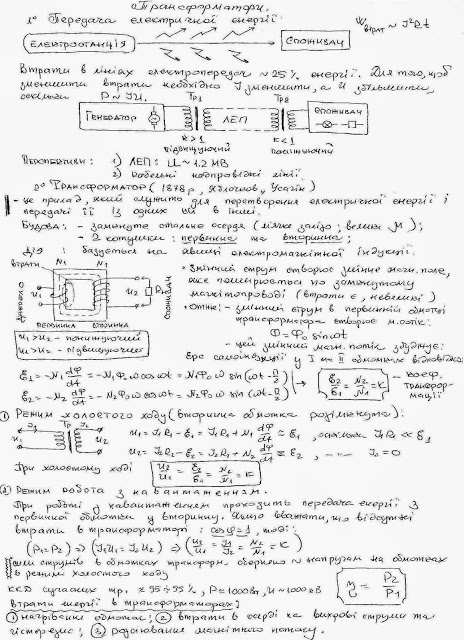 Трансформатори.
1° Передача електричної енергії:
Wвтрат ~ J²Rt
ЕЛЕКТРОСТАНЦІЯ
СПОЖИВАЧ
Втрати в лініях електропередач ~ 25% енергії. Для того, щоб
зменшити втрати необхідно J зменшити, а U збільшити,
оскільки P ~ JU.
Тр1 Тр2
ГЕНЕРАТОР ЛЕП СПОЖИВАЧ
K>1 K<1
підвищуючий понижуючий
ПЕРСПЕКТИВИ: 1) ЛЕП: U ~ 1.2 МВ
2) кабельні надпровідні лінії.
2° ТРАНСФОРМАТОР (1878 р, Яблочков, Усагін)
- це прилад, який служить для перетворення електричної енергії і
передачі її із одних кіл в інші.
Будова: - замкнуте сталеве осердя (м'яке залізо; велика μ);
- 2 котушки: первинна та вторинна;
Дія: базується на явищі електромагнітної індукції.
втрати
N1 N2
ДЖЕРЕЛО
U1 U2
СПОЖИВАЧ
ПЕРВИННА ВТОРИННА
• Змінний струм створює змінне магн. поле,
яке поширюється по замкнутому
магнітопроводі (втрати є, невеликі)
• отже: - змінний струм в первинній обмотці
трансформатора створює м.потік:
Φ = Φ₀ sin ωt
- цей змінний магн. потік збуджує:
U1>U2 - понижуючий
U2>U1 - підвищуючий
Ерс самоіндукції у I та II обмотках відповідно:
Ɛ1 = -N1 dΦ/dt = -N1Φ₀ω cos ωt = N1Φ₀ω sin (ωt - π/2)
Ɛ2 = -N2 dΦ/dt = -N2Φ₀ω cos ωt = N2Φ₀ω sin (ωt - π/2)
Ɛ2/Ɛ1 = N2/N1 = K
- коеф. трансформації
① Режим холостого ходу (вторинна обмотка розімкнута):
U1 = J1R1 - Ɛ1 = J1R1 + N1 dΦ/dt ≈ Ɛ1, оскільки J1R1 ≪ Ɛ1
U2 = J2R2 - Ɛ2 = J2R2 + N2 dΦ/dt ≈ Ɛ2, J2 = 0
При холостому ході U2/U1 = Ɛ2/Ɛ1 = N2/N1 = K
② Режим роботи з навантаженням.
При роботі з навантаженням проходить передача енергії з
первинної обмотки у вторинну. Якщо вважати, що відсутні
втрати в трансформаторі: cos φ = 1, тоді:
(P1 = P2) ⇒ (J1U1 = J2U2) ⇒ (U2/U1 = J1/J2 = N2/N1 = K)
сили струмів в обмотках трансформ. обернено ~ напругам на обмотках
в режимі холостого ходу
η = P2/P1
ККД сучасних тр. ≈ 95÷99%, P = 1000 Вт, U ~ 1000 кВ
Втрати енергії в трансформаторах:
① нагрівання обмоток; ② втрати в осерді на вихрові струми та
гістерезис; ③ розсіювання магнітного потоку.